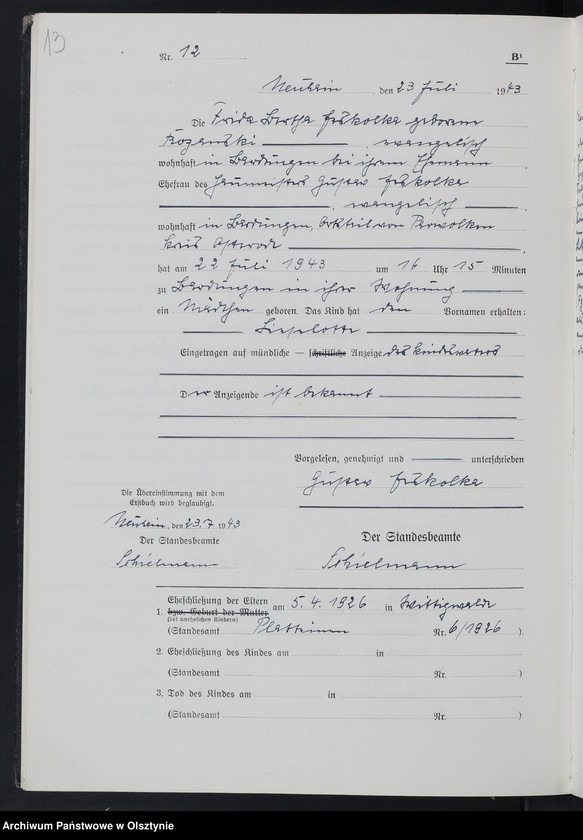 13
Nr. 12
B¹
Neuhain, den 23 Juli 1943
Die Frida Bertha Jeskolka geborene
Rozanski, evangelisch
wohnhaft in Bardungen bei ihrem Ehemann
Ehefrau des Gustav Jeskolka
, evangelisch
wohnhaft in Bardungen, Ortsteil von
Kreis Osterode,
hat am 22 Juli 1943 um 16 Uhr 15 Minuten
zu Bardungen in ihrer Wohnung
ein Mädchen geboren. Das Kind hat den Vornamen erhalten:
Lieselotte
Eingetragen auf mündliche — schriftliche Anzeige des Kindesvaters
Der Anzeigende ist bekannt
Vorgelesen, genehmigt und unterschrieben
Gustav Jeskolka
Die Übereinstimmung mit dem
Erstbuch wird beglaubigt.
Neuhain, den 23.7 1943
Der Standesbeamte
Schielmann
Der Standesbeamte
Schielmann
1. Eheschließung der Eltern
bzw. Geburt der Mutter
(bei unehelichen Kindern)
am 5.4.1926 in Wittigwalde
(Standesamt Plattainen Nr. 6/1926 ).
2. Eheschließung des Kindes am in
(Standesamt Nr. )
3. Tod des Kindes am in
(Standesamt Nr. )
Archiwum Państwowe w Olsztynie